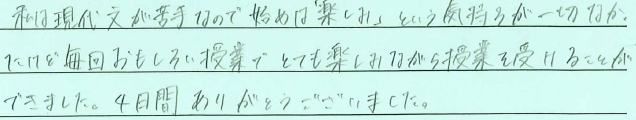 私は現代文が苦手なので始めは「楽しみ」という気持ちが一切なかっ
たけど毎回おもしろい授業でとても楽しみながら授業を受けることが
できました。4日間ありがとうございました。